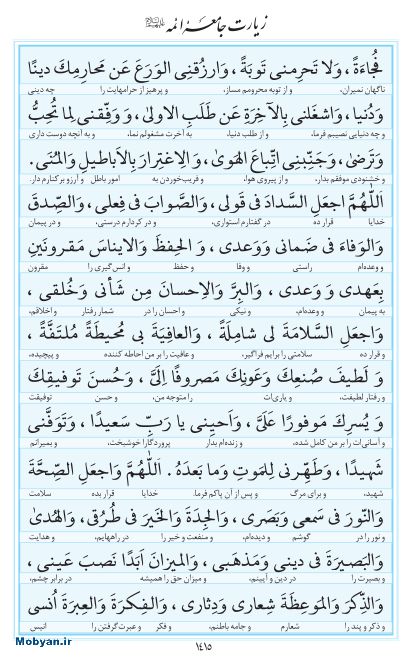 زیارت جامعهٔ ائمه
فُجاءَةً ، وَلا تَحرِمنى تَوبَةً ، وَارزُقنِى الوَرَعَ عَن مَحارِمِكَ دينًا
ناگهان نمیران، و از توبه محرومم مساز، و پرهیز از حرامهایت را چه دینی
وَدُنيا ، وَاشغَلنى بِالآخِرَةِ عَن طَلَبِ الاولىٰ ، وَوَفِّقنى لِما تُحِبُّ
و چه دنیایی نصیبم فرما، و از طلب دنیا، به آخرت مشغولم نما، و به آنچه دوست داری
وَتَرضىٰ ، وَجَنِّبنِى اتِّباعَ الهَوىٰ ، وَالاِغتِرارَ بِالاَباطيلِ وَالمُنىٰ .
و خشنودی موفقم بدار، و از پیروی هوا، و فریب‌خوردن به امور باطل و آرزو برکنارم دار.
اَللّٰهُمَّ اجعَلِ السَّدادَ فى قَولى ، وَالصَّوابَ فى فِعلى ، وَالصِّدقَ
خدایا قرار ده در گفتارم استواری، و در کردارم درستی، و در پیمان
وَالوَفاءَ فى ضَمانى وَوَعدى ، وَ الحِفظَ وَالايناسَ مَقرونَينِ
و وعده‌ام راستی و وفا و حفظ و انس‌گیری را مقرون
بِعَهدى وَ وَعدى ، وَالبِرَّ وَالاِحسانَ مِن شَأنى وَخُلقى ،
به پیمان و وعده‌ام، و نیکی و احسان را در شمار رفتار و اخلاقم،
وَاجعَلِ السَّلامَةَ لى شامِلَةً ، وَالعافِيَةَ بى مُحيطَةً مُلتَفَّةً ،
و قرار ده سلامتی را برایم فراگیر، و عافیت را بر من احاطه کننده و پیچیده،
وَ لَطيفَ صُنعِكَ وَعَونِكَ مَصروفًا اِلَىَّ ، وَحُسنَ تَوفيقِكَ
و رفتار لطیفت، و یاری‌ات را متوجه من، و حسن توفیقت
وَ يُسرِكَ مَوفورًا عَلَىَّ ، وَاَحيِنى يا رَبِّ سَعيدًا ، وَتَوَفَّنى
و آسانی‌ات را بر من کامل شده، و زنده‌ام بدار پروردگارا خوشبخت، و بمیرانم
شَهيدًا ، وَطَهِّرنى لِلمَوتِ وَما بَعدَهُ . اَللّٰهُمَّ وَاجعَلِ الصِّحَّةَ
شهید، و برای مرگ و پس از آن پاکم فرما. خدایا قرار بده سلامت
وَالنّورَ فى سَمعى وَبَصَرى ، وَالجِدَةَ وَالخَيرَ فى طُرُقى ، وَالهُدىٰ
و نور را در گوشم و دیده‌ام، و منفعت و خیر را در راههایم، و هدایت
وَالبَصيرَةَ فى دينى وَمَذهَبى ، وَالميزانَ اَبَدًا نَصبَ عَينى ،
و بصیرت را در دین و آیینم، و میزان حق را همیشه در برابر چشم،
وَالذِّكرَ وَالمَوعِظَةَ شِعارى وَدِثارى ، وَالفِكرَةَ وَالعِبرَةَ اُنسى
و ذکر و پند را شعارم و جامه باطنم، و فکر و عبرت‌گرفتن را انیس
۱٤۱۵
Mobyan.ir